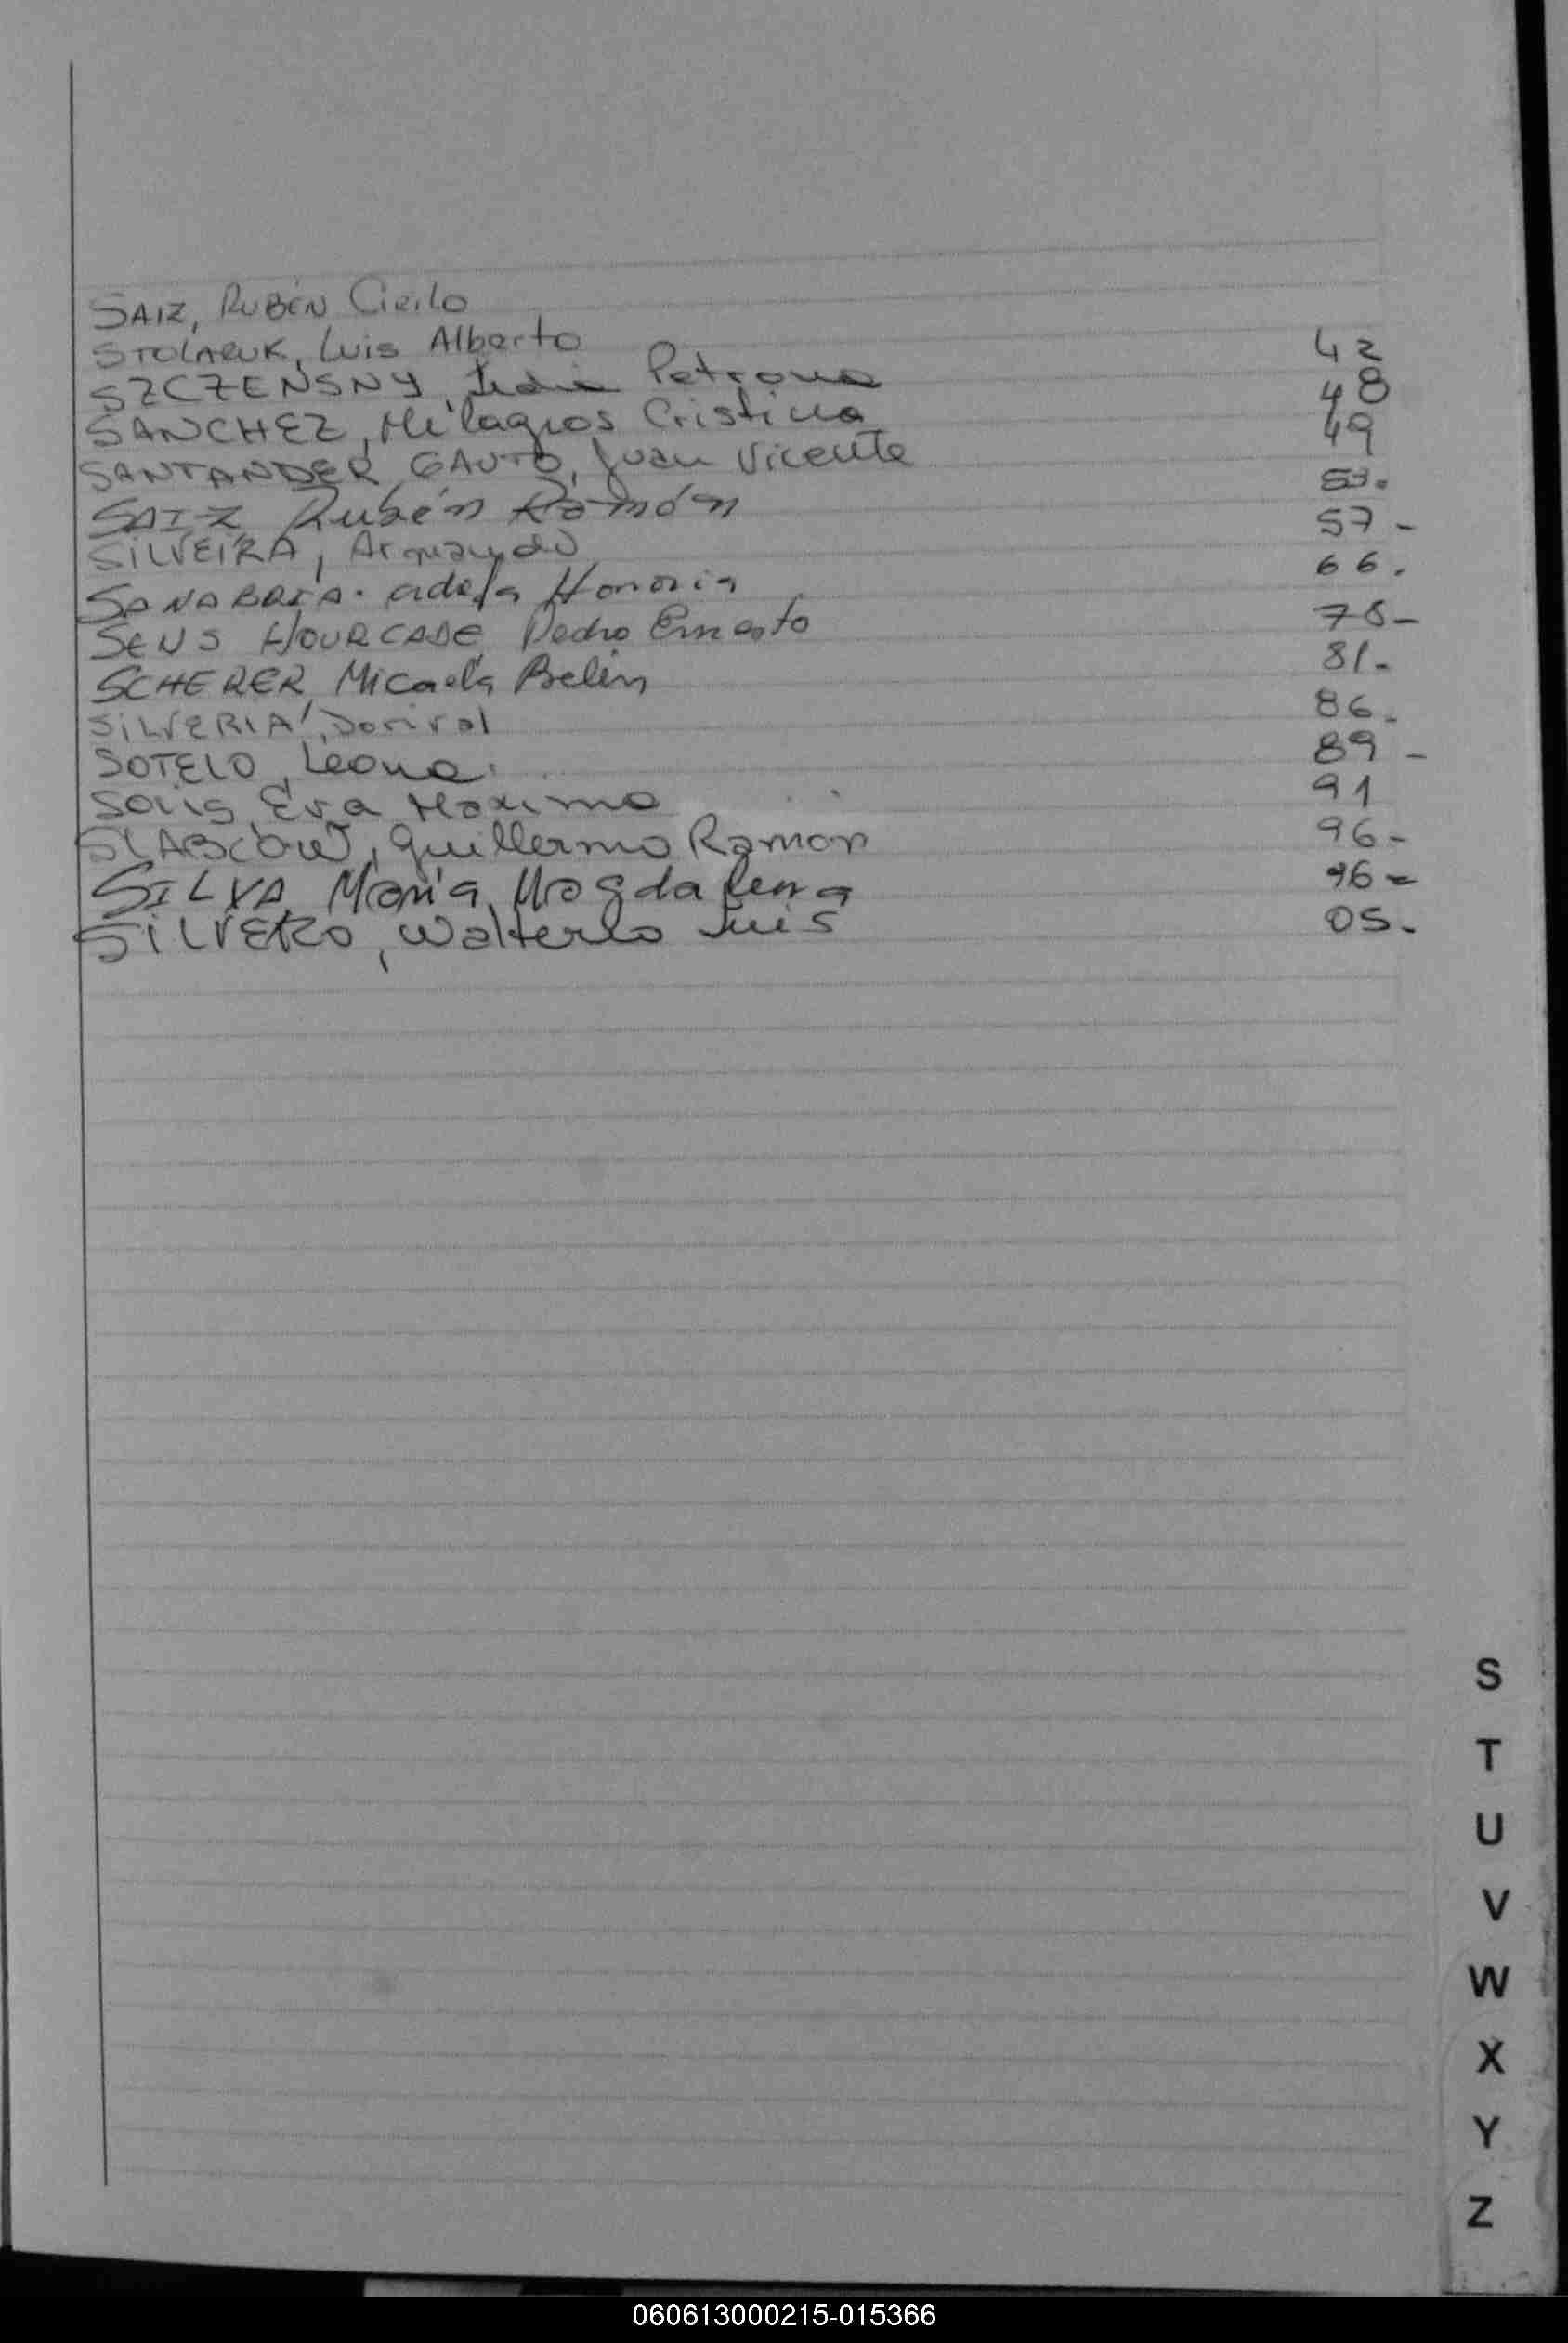 SAIZ, RUBÉN Cirilo
STOLARUK, Luis Alberto
SZCZENSNY, Petrona 42
SANCHEZ, Milagros Cristina 48
SANTANDER GAUTO, Juan Vicente 49
SAIZ Rubén Ramón 53.
SILVEIRA, Armando 57-
SANABRIA. adela Honoria 66.
SENS HOURCADE, Pedro Ernesto 78-
SCHERER Micaela Belén 81-
SILVERIA, Dorival 86-
SOTELO, Leona. 89-
Solis, Eva Maxima 91
SLABCOW, Guillermo Ramon 96-
SILVA María Magdalena 96=
SILVERO, Walterio Luis 05.
S
T
U
V
W
X
Y
Z
060613000215-015366